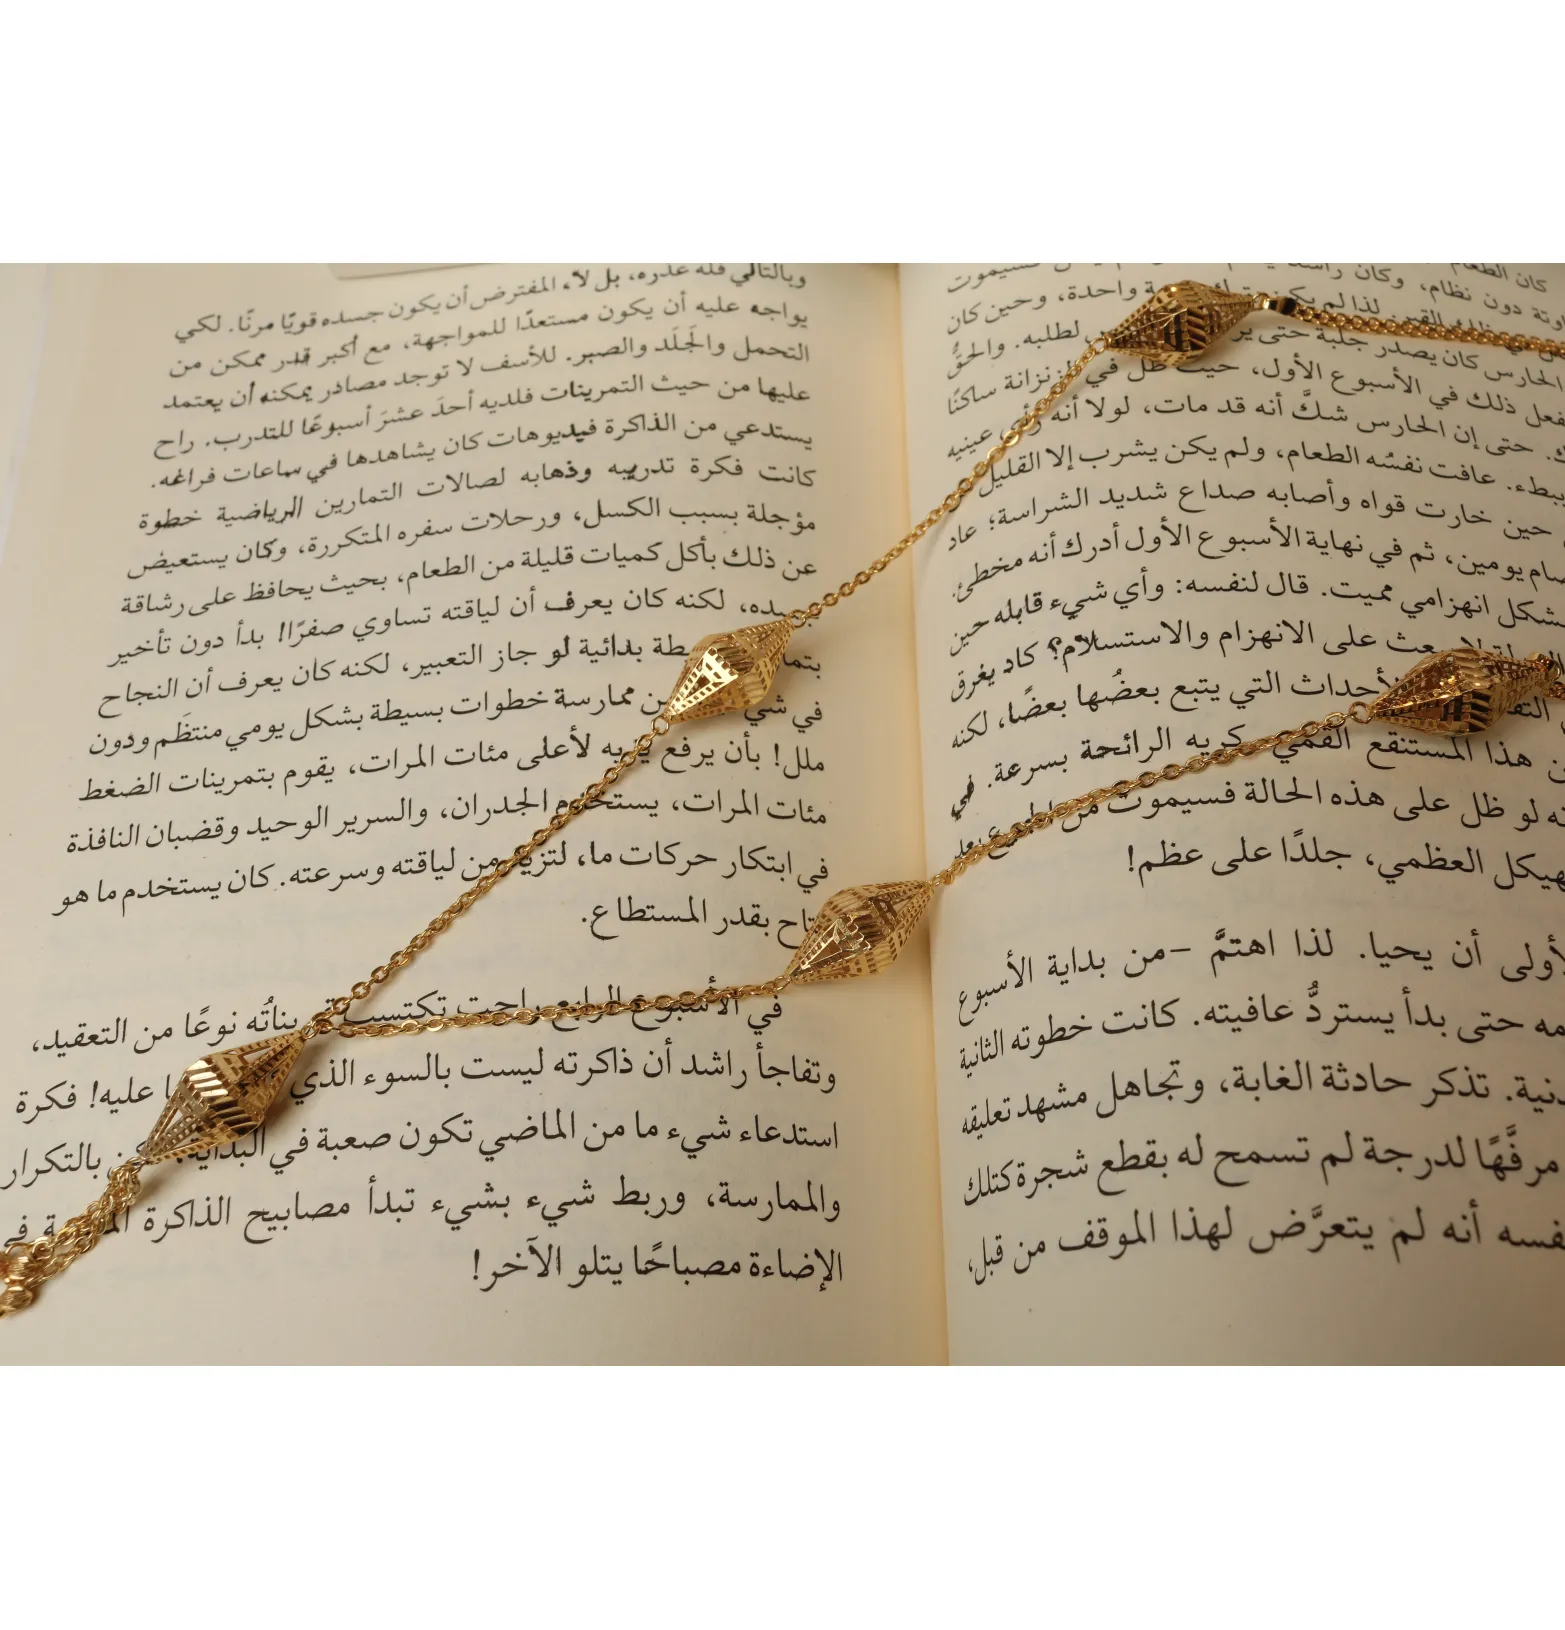 كان الطعام
دون نظام، وكان
لذا لم يكن واحدة، وحين كان
الحارس كان يصدر جلبة حتى لطلبه. والحقُّ
ذلك في الأسبوع الأول، حيث ظل في ساكنًا
حتى إن الحارس شكَّ أنه قد مات، لولا أنه رأى عينيه
ببطء. عافت نفسُه الطعام، ولم يكن يشرب إلا القليل
حين خارت قواه وأصابه صداع شديد الشراسة؛ عاد
يومين، ثم في نهاية الأسبوع الأول أدرك أنه مخطئ.
بشكل انهزامي مميت. قال لنفسه: وأي شيء قابله حين
يبعث على الانهزام والاستسلام؟ كاد يغرق
الأحداث التي يتبع بعضُها بعضًا، لكنه
هذا المستنقع القميء كريه الرائحة بسرعة. في
لو ظل على هذه الحالة فسيموت من
العظمي، جلدًا على عظم!
أن يحيا. لذا اهتمَّ -من بداية الأسبوع
حتى بدأ يستردُّ عافيته. كانت خطوته الثانية
تذكر حادثة الغابة، وتجاهل مشهد تعليقه
مرفَّهًا لدرجة لم تسمح له بقطع شجرة كتلك
أنه لم يتعرَّض لهذا الموقف من قبل،
وبالتالي فله عذره، بل لأن المفترض أن يكون جسده قويًّا مرنًا. لكي
يواجه عليه أن يكون مستعدًّا للمواجهة، مع أكبر قدر ممكن من
التحمل والجَلَد والصبر. للأسف لا توجد مصادر يمكنه أن يعتمد
عليها من حيث التمرينات فلديه أحدَ عشرَ أسبوعًا للتدرب. راح
يستدعي من الذاكرة فيديوهات كان يشاهدها في ساعات فراغه.
كانت فكرة تدريبه وذهابه لصالات التمارين الرياضية خطوة
مؤجلة بسبب الكسل، ورحلات سفره المتكررة، وكان يستعيض
عن ذلك بأكل كميات قليلة من الطعام، بحيث يحافظ على رشاقة
جسده، لكنه كان يعرف أن لياقته تساوي صفرًا! بدأ دون تأخير
بدائية لو جاز التعبير، لكنه كان يعرف أن النجاح
في ممارسة خطوات بسيطة بشكل يومي منتظَم ودون
ملل! بأن يرفع يديه لأعلى مئات المرات، يقوم بتمرينات الضغط
مئات المرات، يستخدم الجدران، والسرير الوحيد وقضبان النافذة
في ابتكار حركات ما، لتزيد من لياقته وسرعته. كان يستخدم ما هو
متاح بقدر المستطاع.
في الأسبوع الرابع راحت تكتسب نوعًا من التعقيد،
وتفاجأ راشد أن ذاكرته ليست بالسوء الذي عليه! فكرة
استدعاء شيء ما من الماضي تكون صعبة في البداية، لكن بالتكرار
والممارسة، وربط شيء بشيء تبدأ مصابيح الذاكرة في
الإضاءة مصباحًا يتلو الآخر!